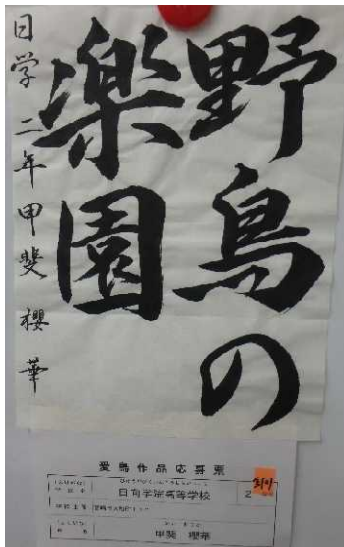 野鳥の
楽園
日学 二年 甲斐 櫻華
愛鳥作品応募票
日向学院高等学校
2
甲斐 櫻華